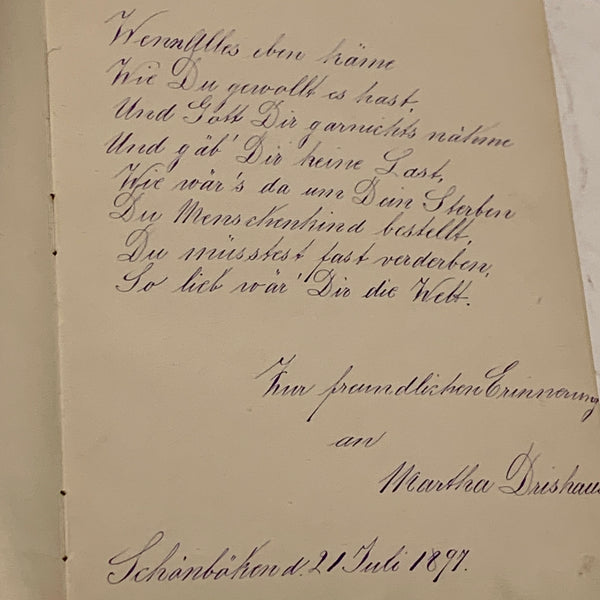 Wenn Alles eben käme
Wie Du gewollt es hast,
Und Gott Dir garnichts nähme
Und gäb' Dir keine Last,
Wie wär's da um Dein Sterben
Du Menschenkind bestellt,
Du müsstest fast verderben,
So lieb wär' Dir die Welt.
Zur freundlichen Erinnerung
an
Martha Drishaus
Schönböken d. 21 Juli 1897.